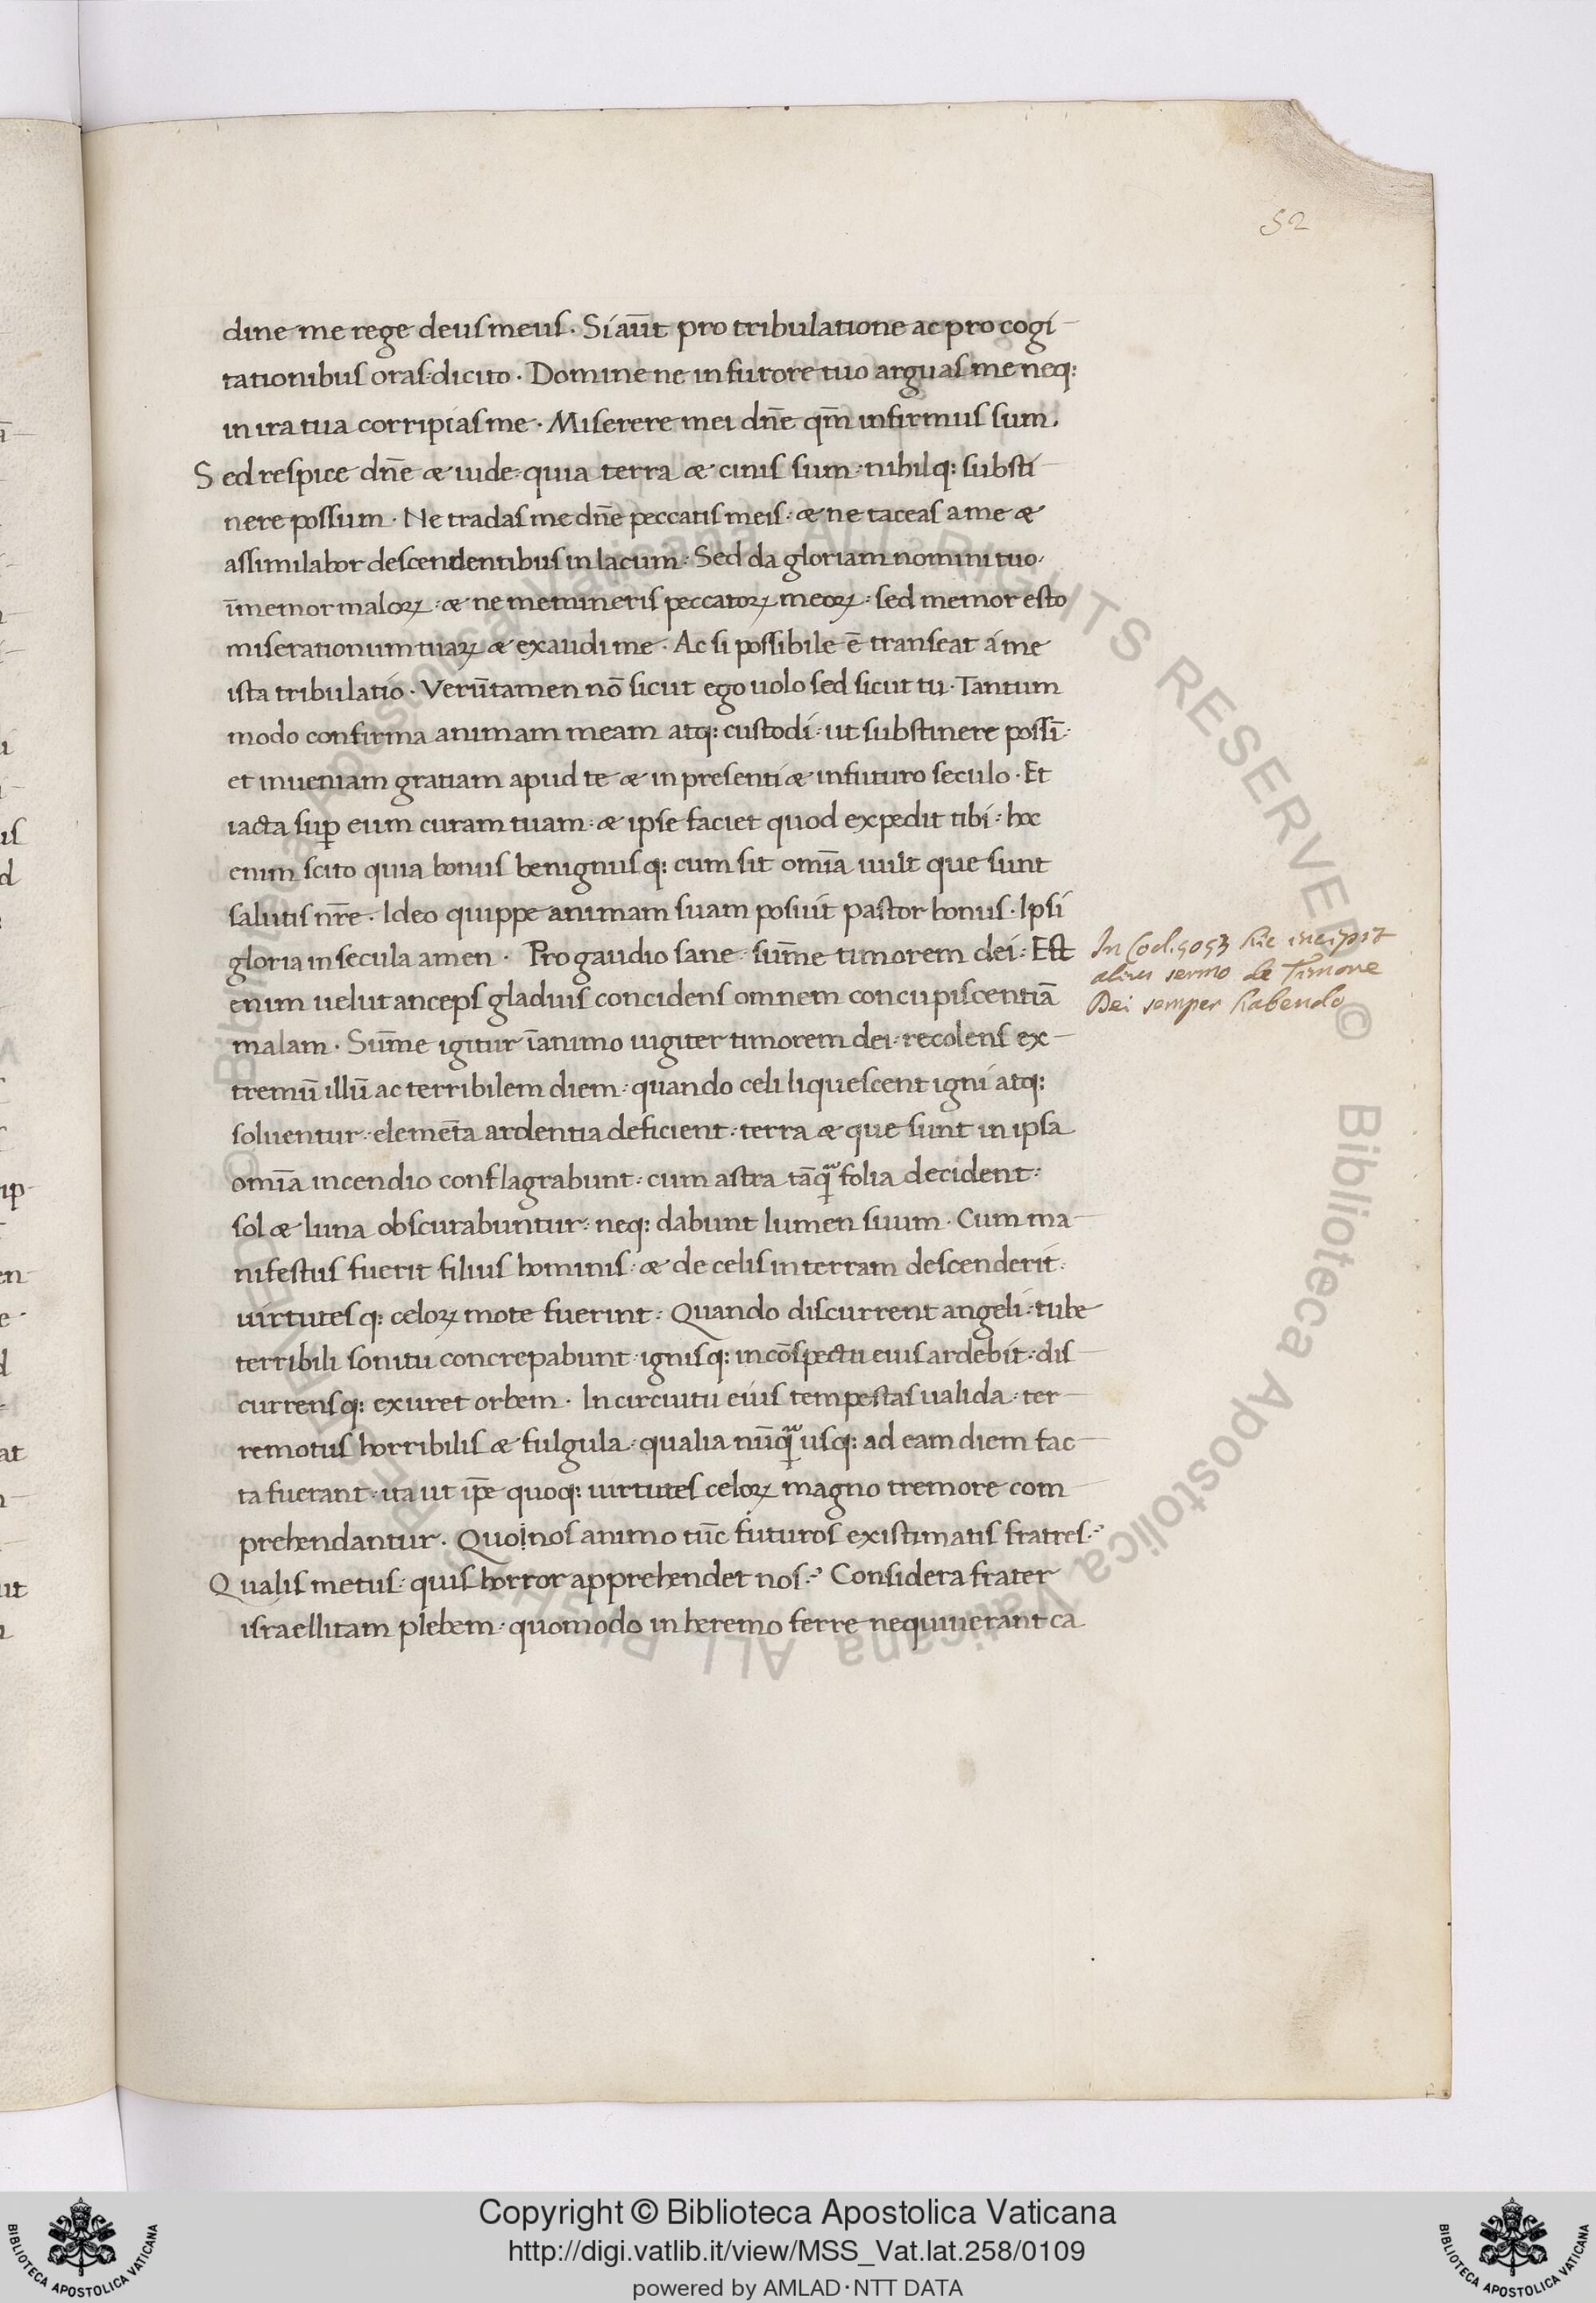 52
dine me rege deus meus · Si aūt pro tribulatione ac pro cogi-
tationibus oras: dicito · Domine ne in furore tuo arguas me neq:
in ira tua corripias me · Miserere mei dn̄e qm̄ infirmus sum.
Sed respice dn̄e & uide: quia terra & cinis sum: nihilq: substi-
nere possum · Ne tradas me dn̄e peccatis meis: & ne taceas a me &
assimilabor descendentibus in lacum: Sed da gloriam nomini tuo·
īmemor maloꝝ: & ne memineris peccatoꝝ meoꝝ: sed memor esto
miserationum tuaꝝ & exaudi me · Ac si possibile ē transeat á me
ista tribulatio · Verūtamen nō sicut ego uolo sed sicut tu · Tantum
modo confirma animam meam atq: custodi: ut substinere possī·
et inueniam gratiam apud te & in presenti & in futuro seculo · Et
iacta suꝑ eum curam tuam: & ipse faciet quod expedit tibi: hoc
enim scito quia bonus benignusq: cum sit omīa uult que sunt
salutis nr̄e · Ideo quippe animam suam posuit pastor bonus · Ipsi
gloria in secula amen · Pro gaudio sane: sum̄e timorem dei: Est
enim uelut anceps gladius concidens omnem concupiscentiā
malam · Sum̄e igitur īanimo iugiter timorem dei: recolens ex-
tremū illū ac terribilem diem: quando celi liquescent igni atq:
soluentur: elemēta ardentia deficient: terra & que sunt in ipsa
omīa incendio conflagrabunt: cum astra tāqᷓ folia decident:
sol & luna obscurabuntur: neq: dabunt lumen suum · Cum ma-
nifestus fuerit filius hominis: & de celis in terram descenderit:
uirtutesq: celoꝝ mote fuerint: Quando discurrent angeli: tube
terribili sonitu concrepabunt: ignisq: in cōspectu eius ardebit: dis-
currensq: exuret orbem · In circuitu eius tempestas ualida: ter-
remotus horribilis & fulgula: qualia nūqᷓ usq: ad eam diem fac-
ta fuerant: ita ut ip̄e quoq: uirtutes celoꝝ magno tremore com
prehendantur · Quo nos animo tūc futuros existimatis fratres:
Qualis metus: quis horror apprehendet nos: Considera frater
israellitam plebem: quomodo in heremo ferre nequiuerant ca
In Cod. 5053 hic incipit
alius sermo de Timore
Dei semper habendo
© Biblioteca Apostolica Vaticana ALL RIGHTS RESERVED
© Biblioteca Apostolica Vaticana ALL RIGHTS RESERVED
Copyright © Biblioteca Apostolica Vaticana
http://digi.vatlib.it/view/MSS_Vat.lat.258/0109
powered by AMLAD·NTT DATA
BIBLIOTECA APOSTOLICA VATICANA
BIBLIOTECA APOSTOLICA VATICANA